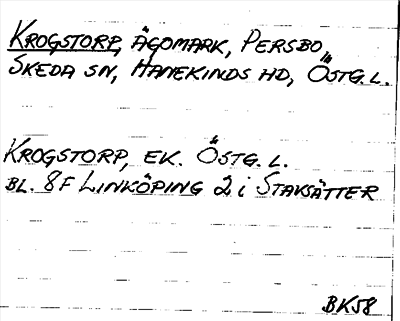 KROGSTORP, ÄGOMARK, PERSBO,
SKEDA SN, HANEKINDS HD, ÖSTG.L.
KROGSTORP, EK. ÖSTG.L.
BL. 8F LINKÖPING 2 i STAVSÄTTER
BK58